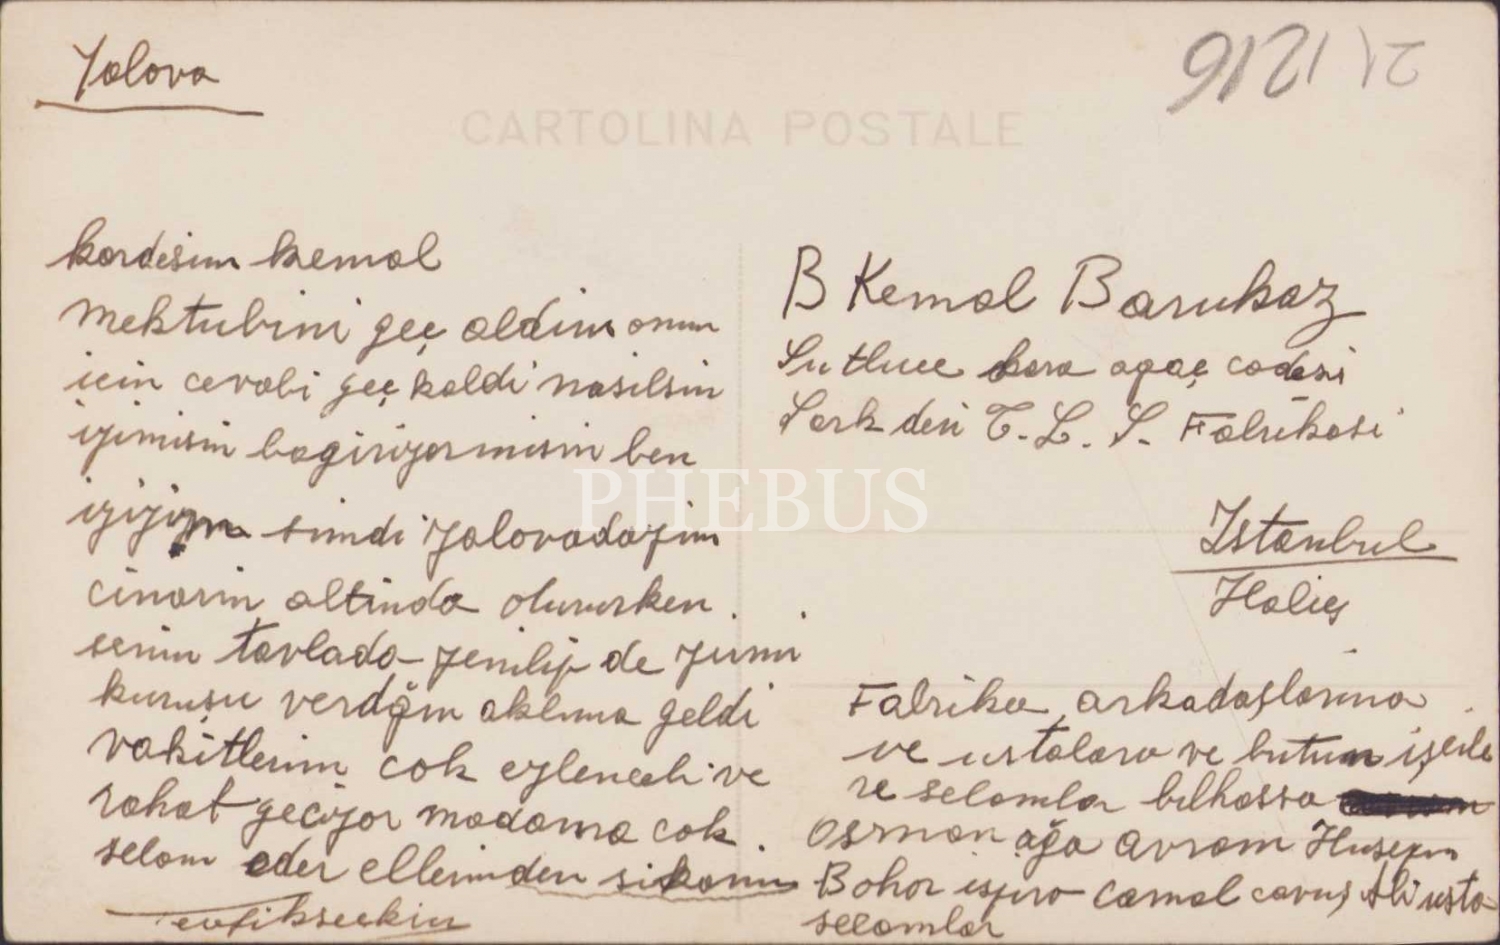 Yalova
21 1216
CARTOLINA POSTALE
kardesim kemal
mektubini geç aldim onun
icin cevabi geç kaldi nasilsin
iyimisin bagiriyormisin ben
iyiyim simdi Yalovadayim
cinarin altinda otururken
senin tavlada yenilip de yirmi
kuruşu verdğin aklima geldi
vakitlerim cok eylenceli ve
rahat geciyor madama cok
selam eder ellerinden sikarim
B Kemal Barukaz
Sutluce kara agaç cadesi
Şark deri T. L. Ş. Fabrikasi
Istanbul
Haliç
Fabrika arkadaşlarina
ve ustalara ve butun işcile
re selamlar bilhassa
Osman ağa Avram Huseyin
Bohor ispiro Camal cavuş Ali usta
selamlar
PHEBUS